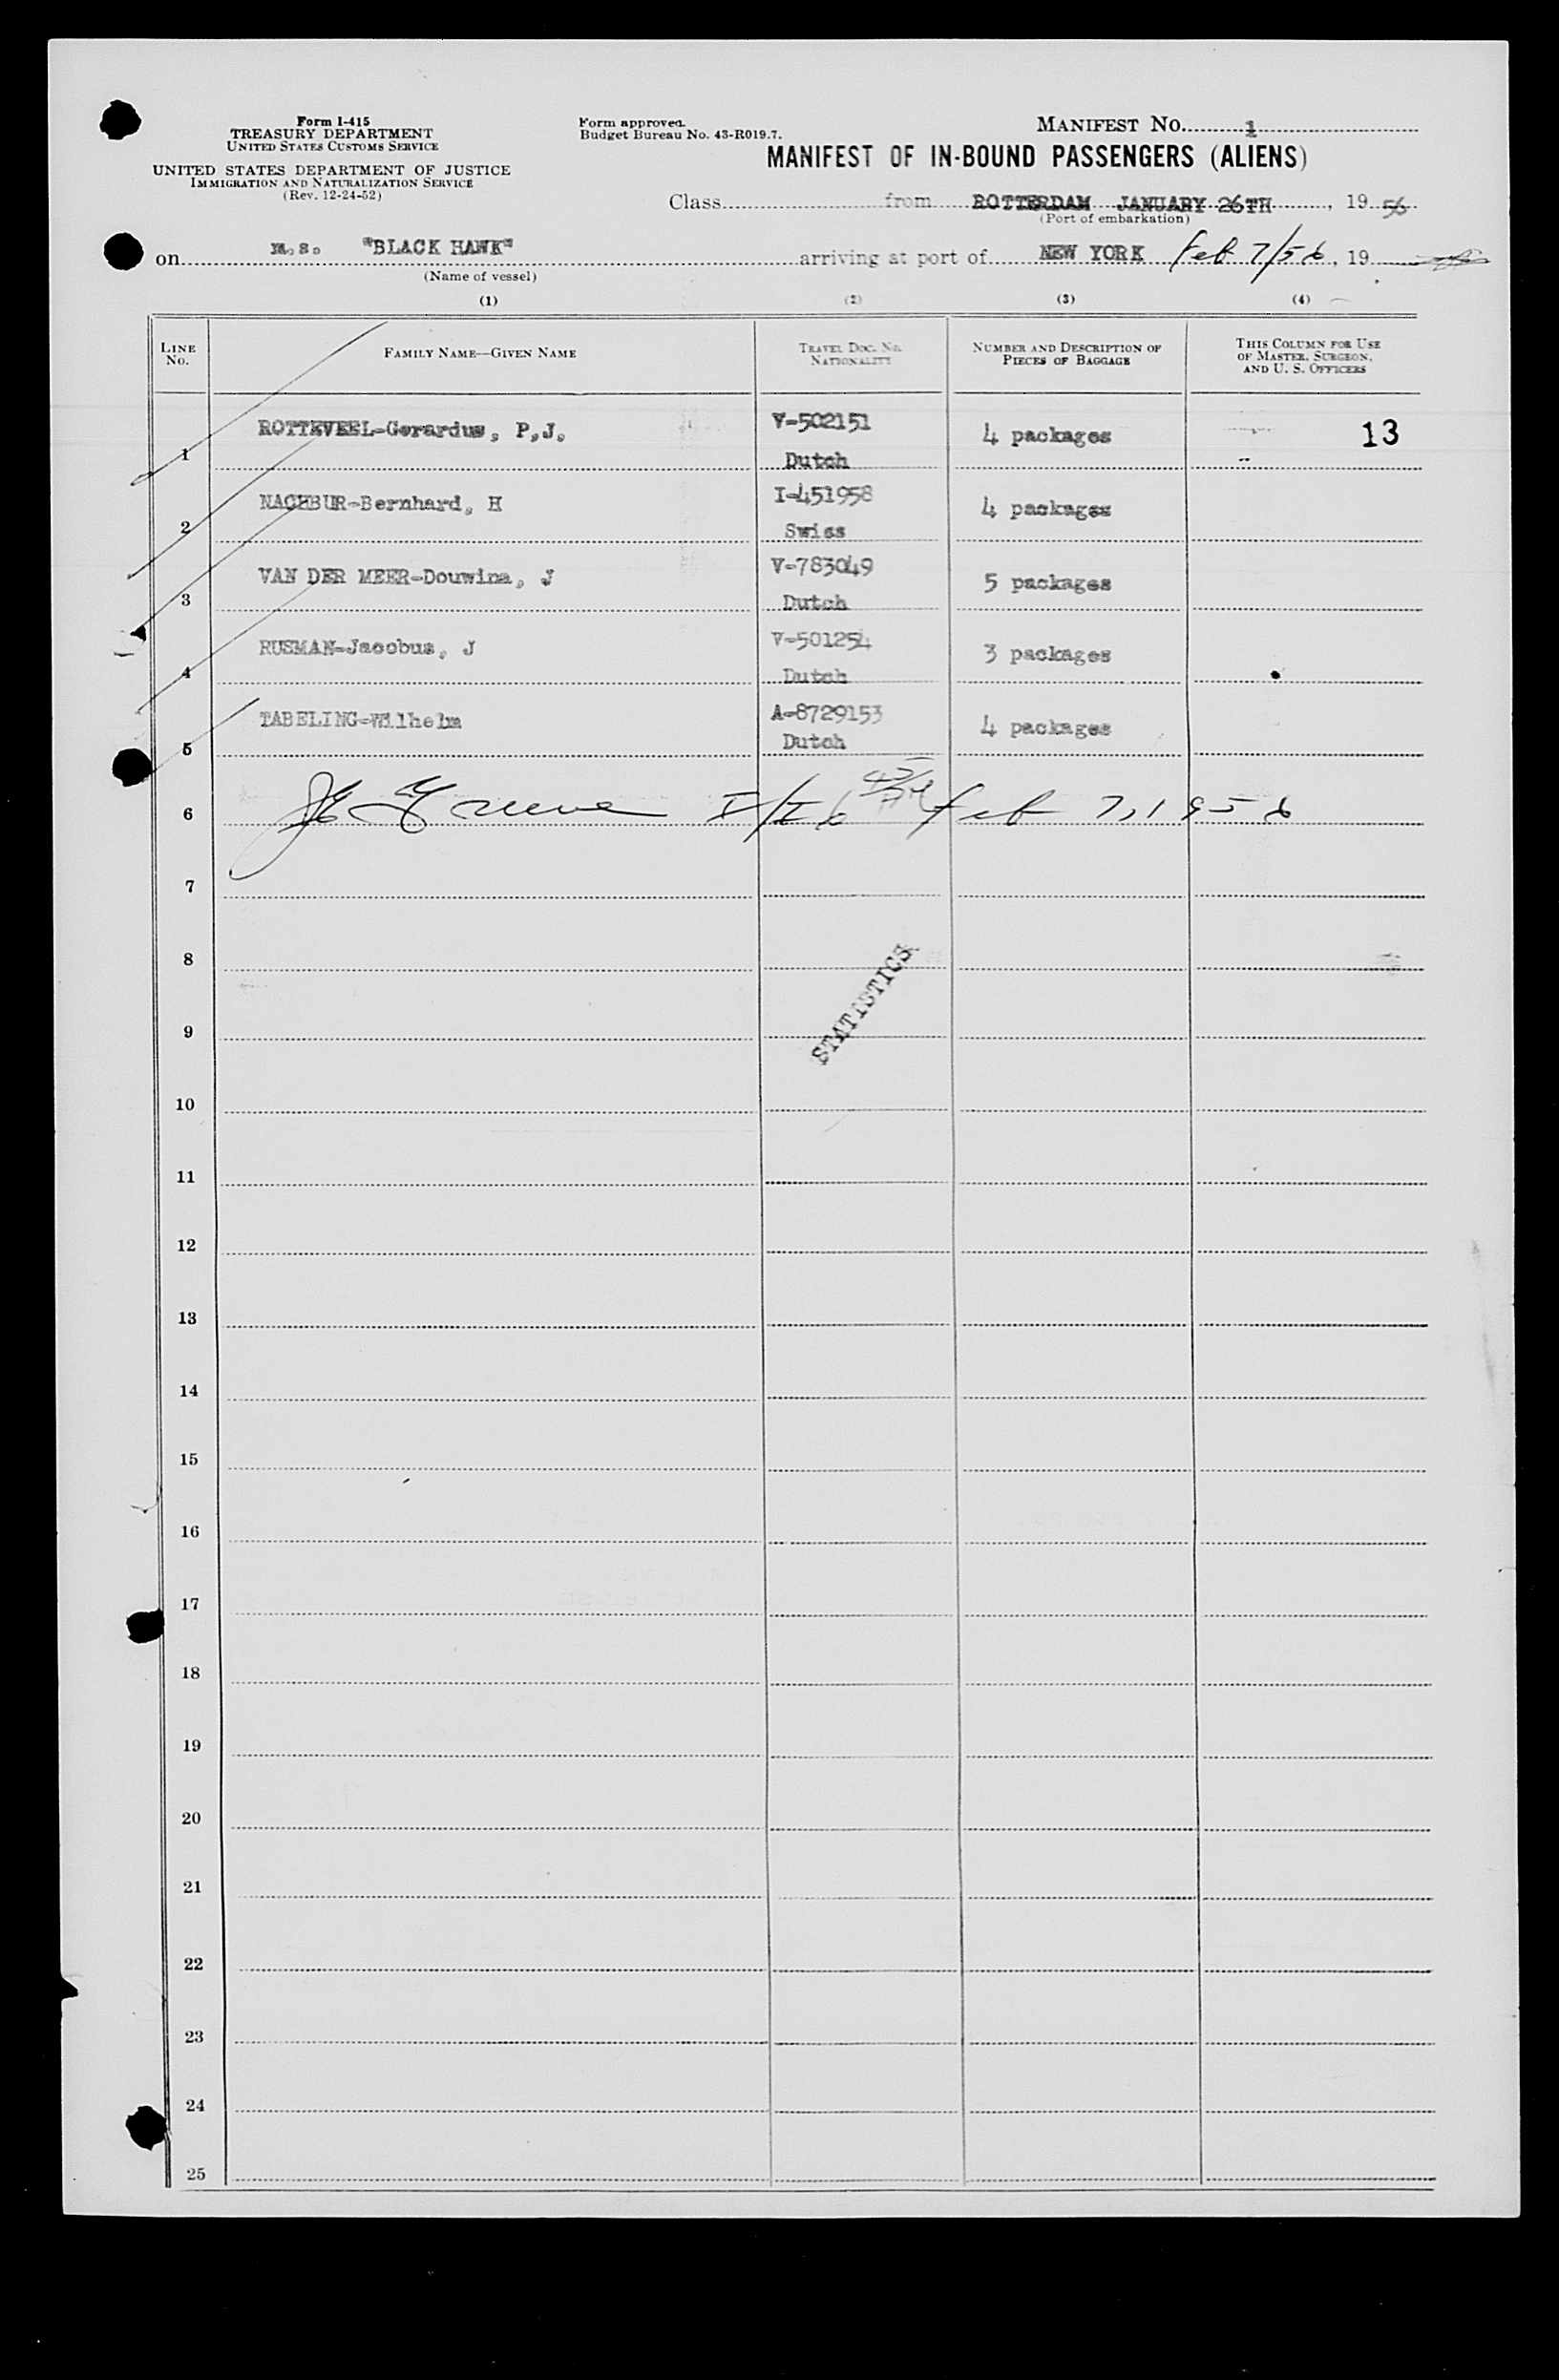 Form I-415
TREASURY DEPARTMENT
UNITED STATES CUSTOMS SERVICE
UNITED STATES DEPARTMENT OF JUSTICE
IMMIGRATION AND NATURALIZATION SERVICE
(Rev. 12-24-52)
Form approved.
Budget Bureau No. 43-R019.7.
MANIFEST NO. 1
MANIFEST OF IN-BOUND PASSENGERS (ALIENS)
Class from ROTTERDAM JANUARY 26TH, 19 56
(Port of embarkation)
on m.s. "BLACK HAWK" arriving at port of NEW YORK Feb 7/56, 19
(Name of vessel)
(1) (2) (3) (4)
LINE No. FAMILY NAME—GIVEN NAME TRAVEL DOC. NO. NATIONALITY NUMBER AND DESCRIPTION OF PIECES OF BAGGAGE THIS COLUMN FOR USE OF MASTER, SURGEON, AND U. S. OFFICERS
1 ROTTEVEEL-Gerardus, P,J, V-502151 Dutch 4 packages 13
2 NACHBUR-Bernhard, H I-451958 Swiss 4 packages
3 VAN DER MEER-Douwina, J V-783049 Dutch 5 packages
4 RUSMAN-Jacobus, J V-501254 Dutch 3 packages
5 TABELING-Wilhelm A-8729153 Dutch 4 packages
6 Feb 7, 1956
7
8
STATISTICS
9
10
11
12
13
14
15
16
17
18
19
20
21
22
23
24
25